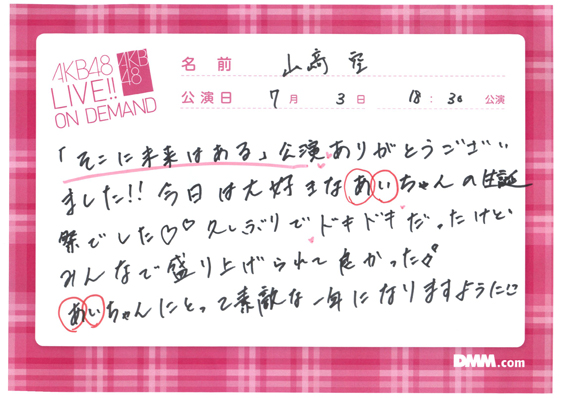 AKB48
LIVE!!
ON DEMAND
AKB
48
名前 山﨑 空
公演日 7月 3日 18:30 公演
「そこに未来はある」公演ありがとうござい
ました!!今日は大好きなあいちゃんの生誕
祭でした♡♡久しぶりでドキドキだったけど
みんなで盛り上げられて良かった
あいちゃんにとって素敵な一年になりますように
DMM.com